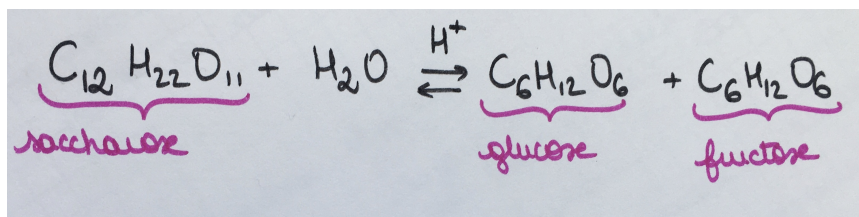 H⁺
C₁₂H₂₂O₁₁ + H₂O ⇌ C₆H₁₂O₆ + C₆H₁₂O₆
saccharose glucose fructose